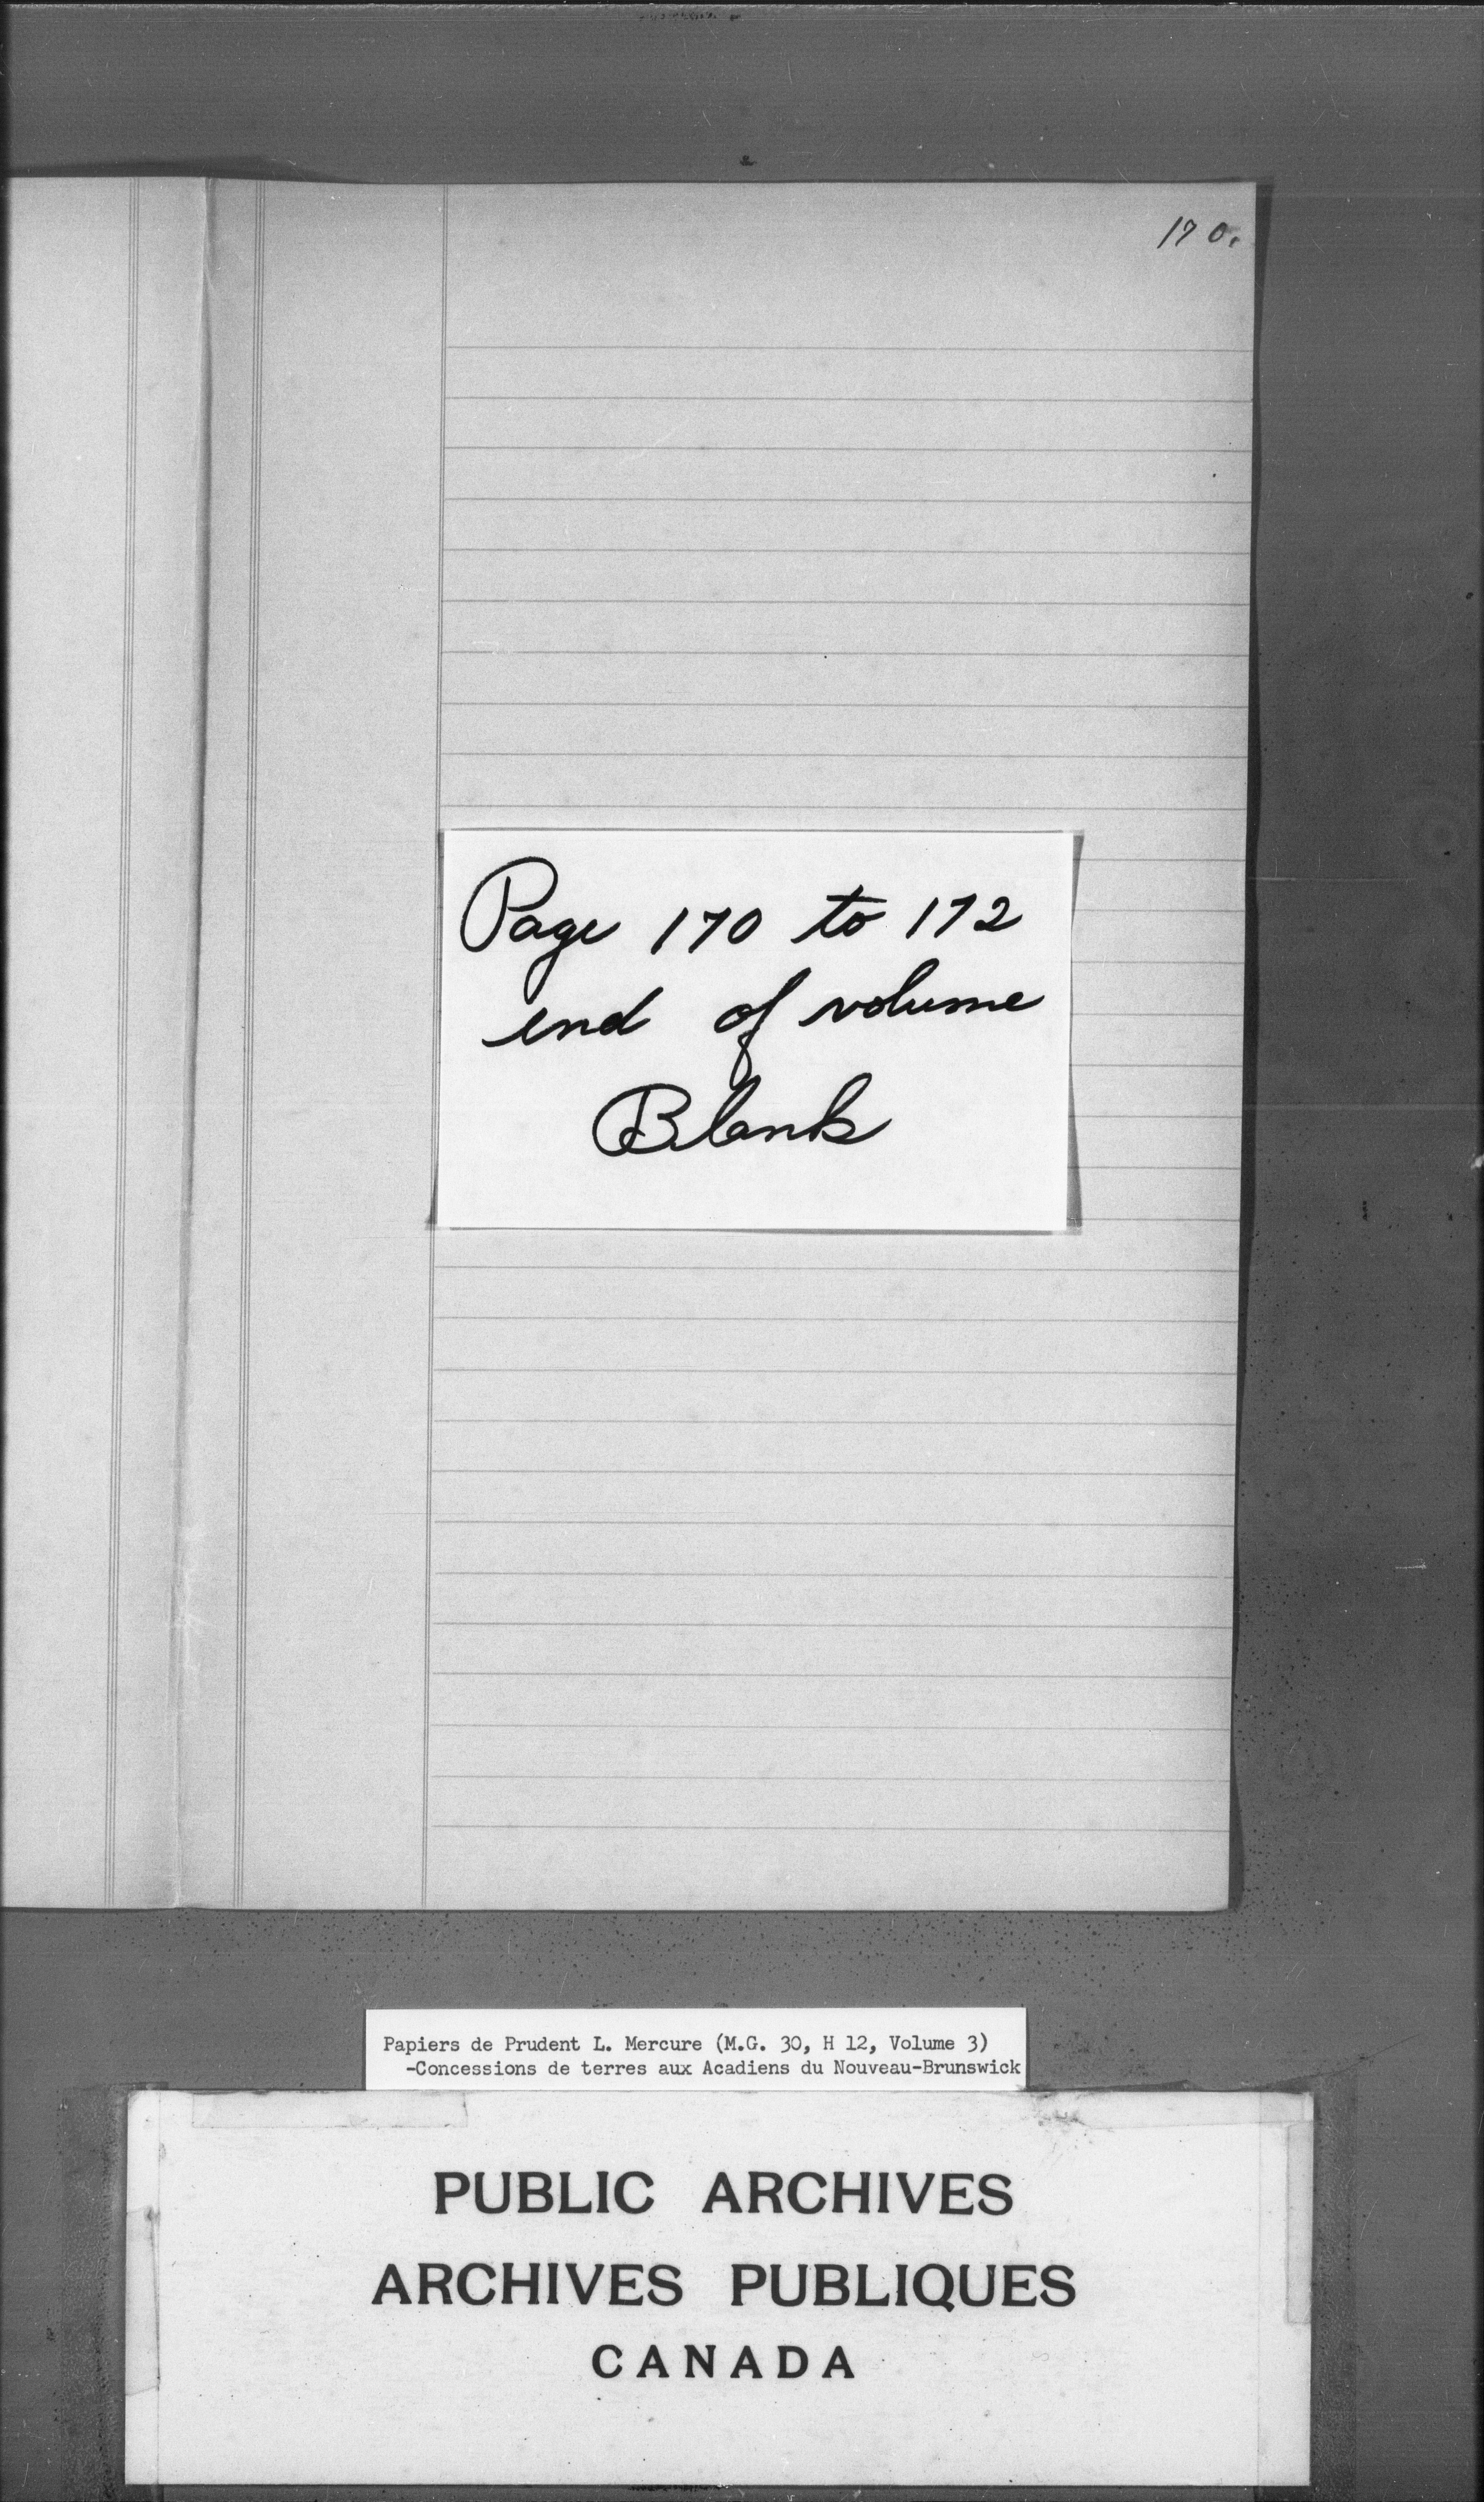 170.
Page 170 to 172
end of volume
Blank
Papiers de Prudent L. Mercure (M.G. 30, H 12, Volume 3)
-Concessions de terres aux Acadiens du Nouveau-Brunswick
PUBLIC ARCHIVES
ARCHIVES PUBLIQUES
CANADA